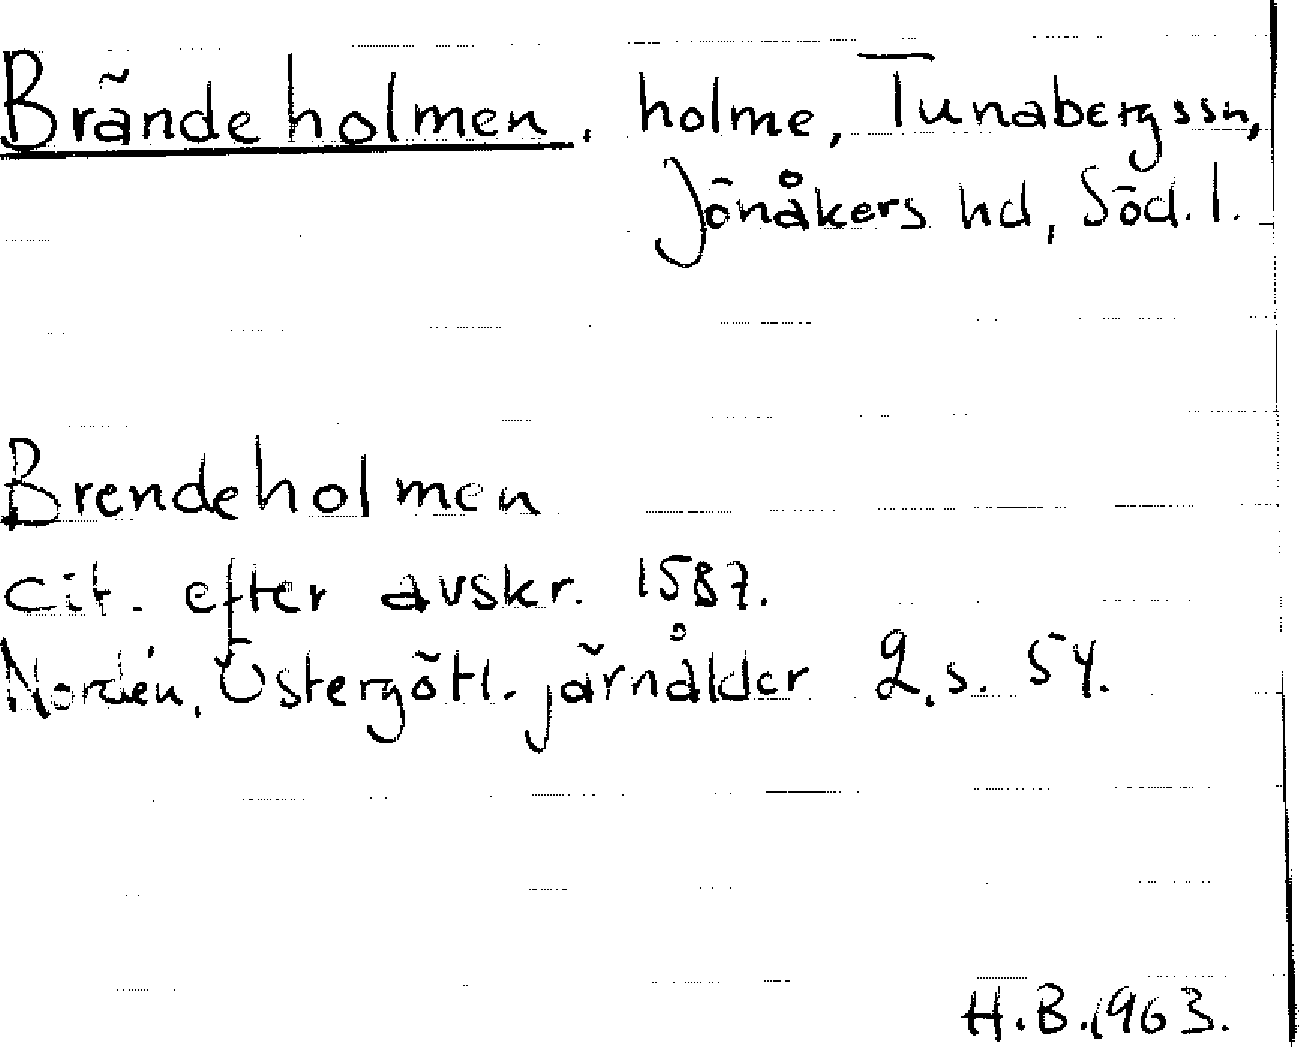 Brändeholmen. holme, Tunabergssn,
Jönåkers hd, Söd. l.
Brendeholmen
cit. efter avskr. 1587.
Nordén, Östergötl. järnålder 2. s. 54.
H.B.1963.